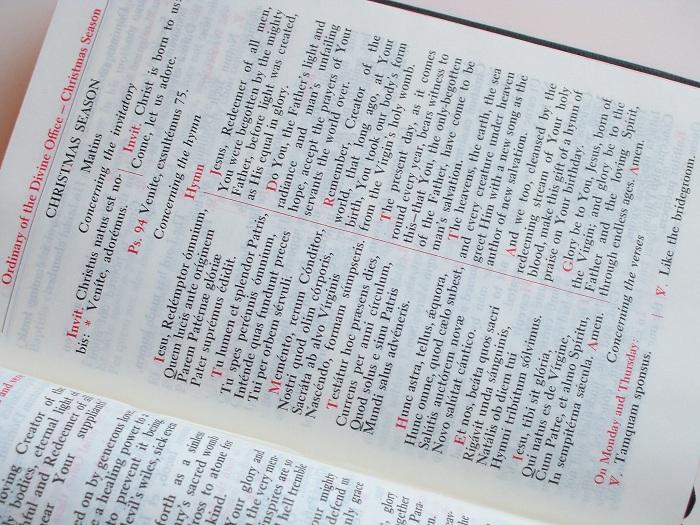 Ordinary of the Divine Office – Christmas Season
CHRISTMAS SEASON
Matins
Concerning the invitatory
Invit. Christus natus est no-
bis: * Veníte, adorémus.
Invit. Christ is born to us:
Come, let us adore.
Ps. 94 Veníte, exsultémus 75.
Concerning the hymn
Hymn
Iesu, Redémptor ómnium,
Quem lucis ante oríginem
Parem Patérnæ glóriæ
Pater suprémus édidit.
Tu lumen et splendor Patris,
Tu spes perénnis ómnium,
Inténde quas fundunt preces
Tui per orbem sérvuli.
Meménto, rerum Cónditor,
Nostri quod olim córporis,
Sacráta ab alvo Vírginis
Nascéndo, formam súmpseris.
Testátur hoc præsens dies,
Currens per anni círculum,
Quod solus e sinu Patris
Mundi salus advéneris.
Hunc astra, tellus, æquora,
Hunc omne, quod cælo subest,
Salútis auctórem novæ
Novo salútat cántico.
Et nos, beáta quos sacri
Rigávit unda sánguinis,
Natális ob diem tui
Hymni tribútum sólvimus.
Iesu, tibi sit glória,
Qui natus es de Vírgine,
Cum Patre, et almo Spíritu,
In sempitérna sǽcula. Amen.
Jesus, Redeemer of all men,
You were begotten by the mighty
Father, before light was created,
as His equal in glory.
Do You, the Father's light and
radiance and man's unfailing
hope, accept the prayers of Your
servants the world over.
Remember, Creator of the
world, that long ago, at Your
birth, You took our body's form
from the Virgin's holy womb.
The present day, as it comes
round every year, bears witness to
this—that You, the only-begotten
of the Father, have come to be
man's salvation.
The heavens, the earth, the sea
and every creature under heaven
greet Him with a new song as the
author of new salvation.
And we too, cleansed by the
redeeming stream of Your holy
blood, make this gift of a hymn of
praise on Your birthday.
Glory be to You, Jesus, born of
the Virgin; and glory be to the
Father and the loving Spirit,
through endless ages. Amen.
Concerning the verses
On Monday and Thursday:
℣. Tamquam sponsus.
℣. Like the bridegroom.
Creator of the
bodies, eternal light of
and Redeemer of all
Your suppliant
on by generous love,
a healing power to a
to prevent it being
devil's wiles, sick even
forth as a sinless
sacred womb
to atone for
kind.
Your glory and
the very men-
are so
hell tremble
mighty
defend us
only grace
glory
together